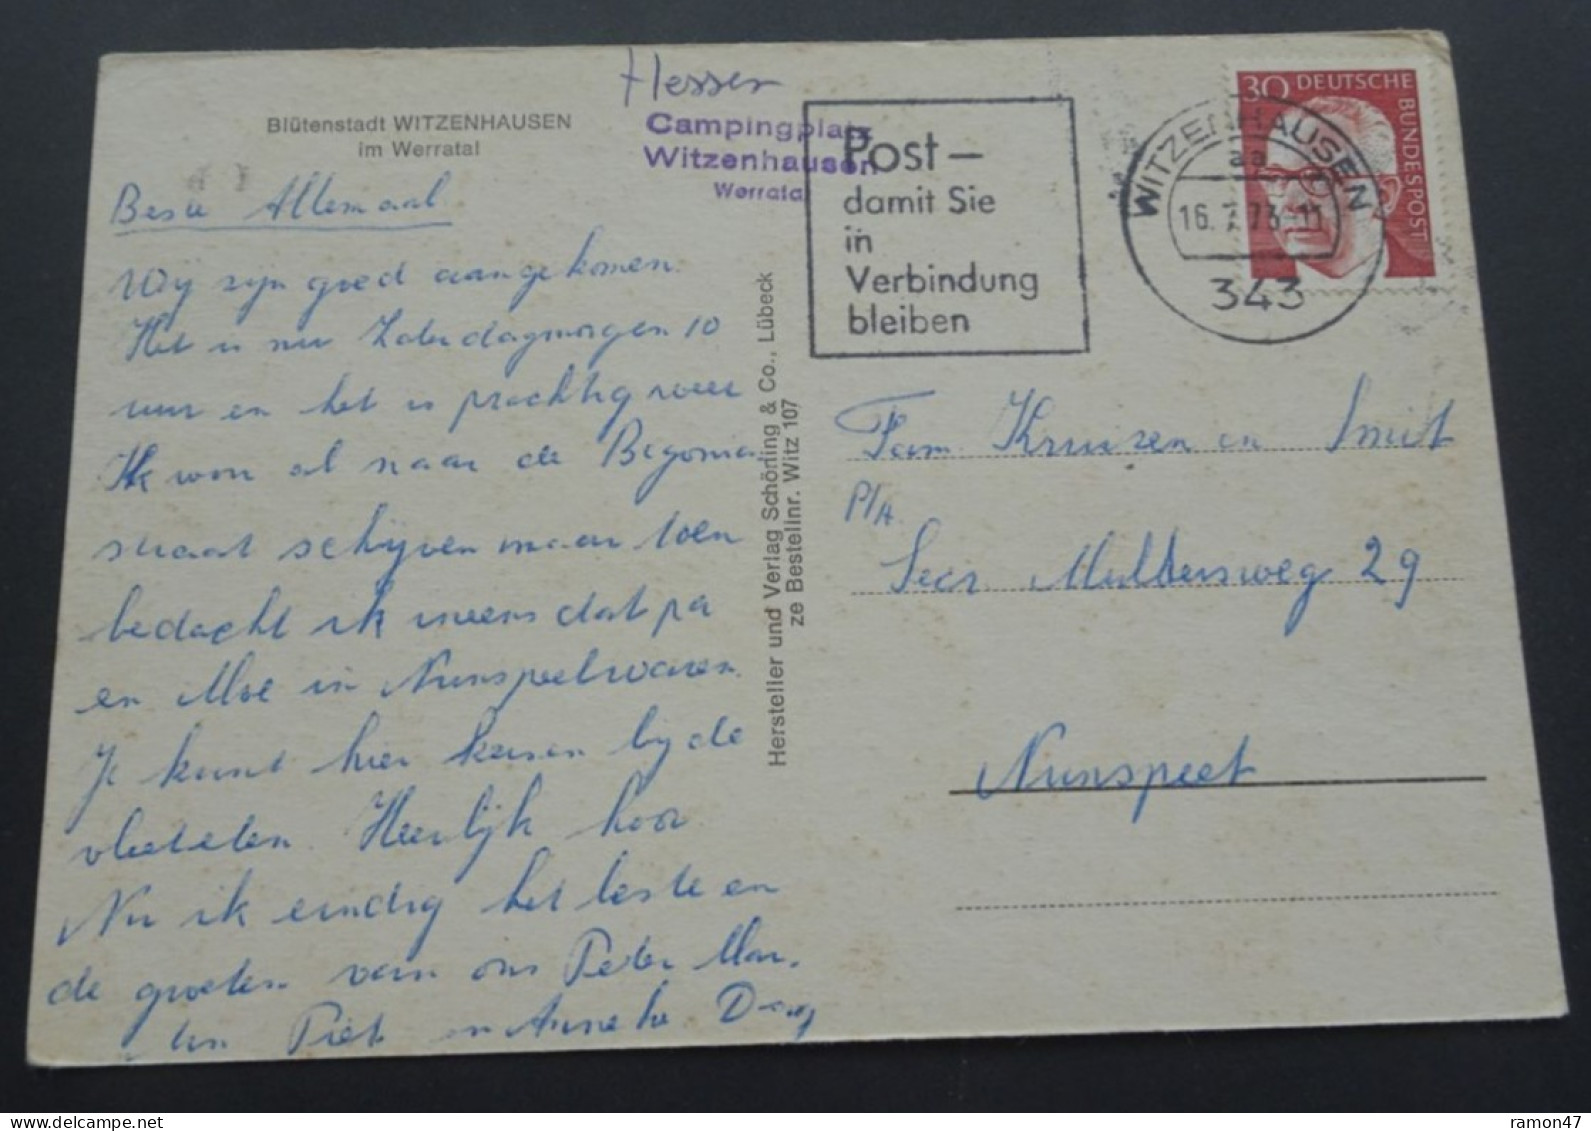 Blütenstadt WITZENHAUSEN
im Werratal
Hessen
Campingplatz
Witzenhausen
Werratal
Post –
damit Sie
in
Verbindung
bleiben
WITZENHAUSEN
aa
16.7.73-11
343
30 DEUTSCHE
BUNDESPOST
Beste Allemaal
Wij zijn goed aangekomen.
Het is nu Zaterdagmorgen 10
uur en het is prachtig weer
Ik wou al naar de Begonia
straat schijven maar toen
bedacht ik ineens dat pa
en Moe in Nunspeet waren.
Je kunt hier kersen bij de
vleet eten. Heerlijk hoor
Nu ik eindig het beste en
de groeten van ons Peter Mar.
ten Piet en Anneke
Hersteller und Verlag Schöning & Co., Lübeck
ze Bestellnr. Witz 107
Fam Kruizen en Smit
P/A
Secr Mulbersweg 29
Nunspeet
ramon47